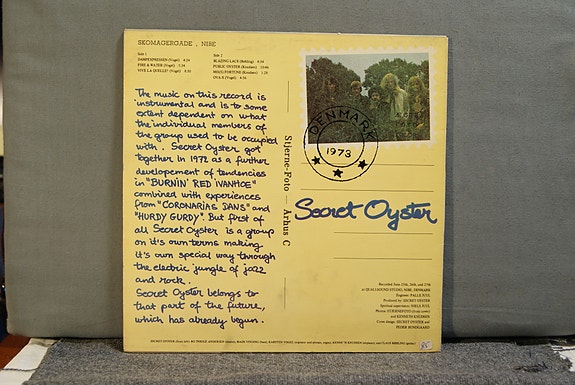 SKOMAGERGADE , NIBE
Side 1
DAMPEXPRESSEN (Vogel) 4:24
FIRE & WATER (Vogel) 5:34
VIVE LA QUELLE? (Vogel) 8:50
Side 2
BLAZING LACE (Bøhling)
PUBLIC OYSTER (Knudsen) 10:40
MIS(S) FORTUNE (Knudsen) 1:28
OVA-X (Vogel)
The music on this record is
instrumental and is to some
extent dependent on what
the individual members of
the group used to be occupied
with. Secret Oyster got
together in 1972 as a further
developement of tendencies
in "BURNIN' RED IVANHOE"
combined with experiences
from "CORONARIAS DANS" and
"HURDY GURDY". But first of
all Secret Oyster is a group
on it's own terms making
it's own special way through
the electric jungle of jazz
and rock.
Secret Oyster belongs to
that part of the future,
which has already begun.
Stjerne-Foto — Århus C
DENMARK
1973
Secret Oyster
Recorded June 25th, 26th, and 27th
at QUALI-SOUND STUDIO, NIBE, DENMARK
Engineer: PALLE JUUL
Produced by: SECRET OYSTER
Spiritual supervision: NIELS JUUL
Photos: STJERNEFOTO (front cover)
and KENNETH KNUDSEN
Cover design: SECRET OYSTER and
PEDER BUNDGAARD